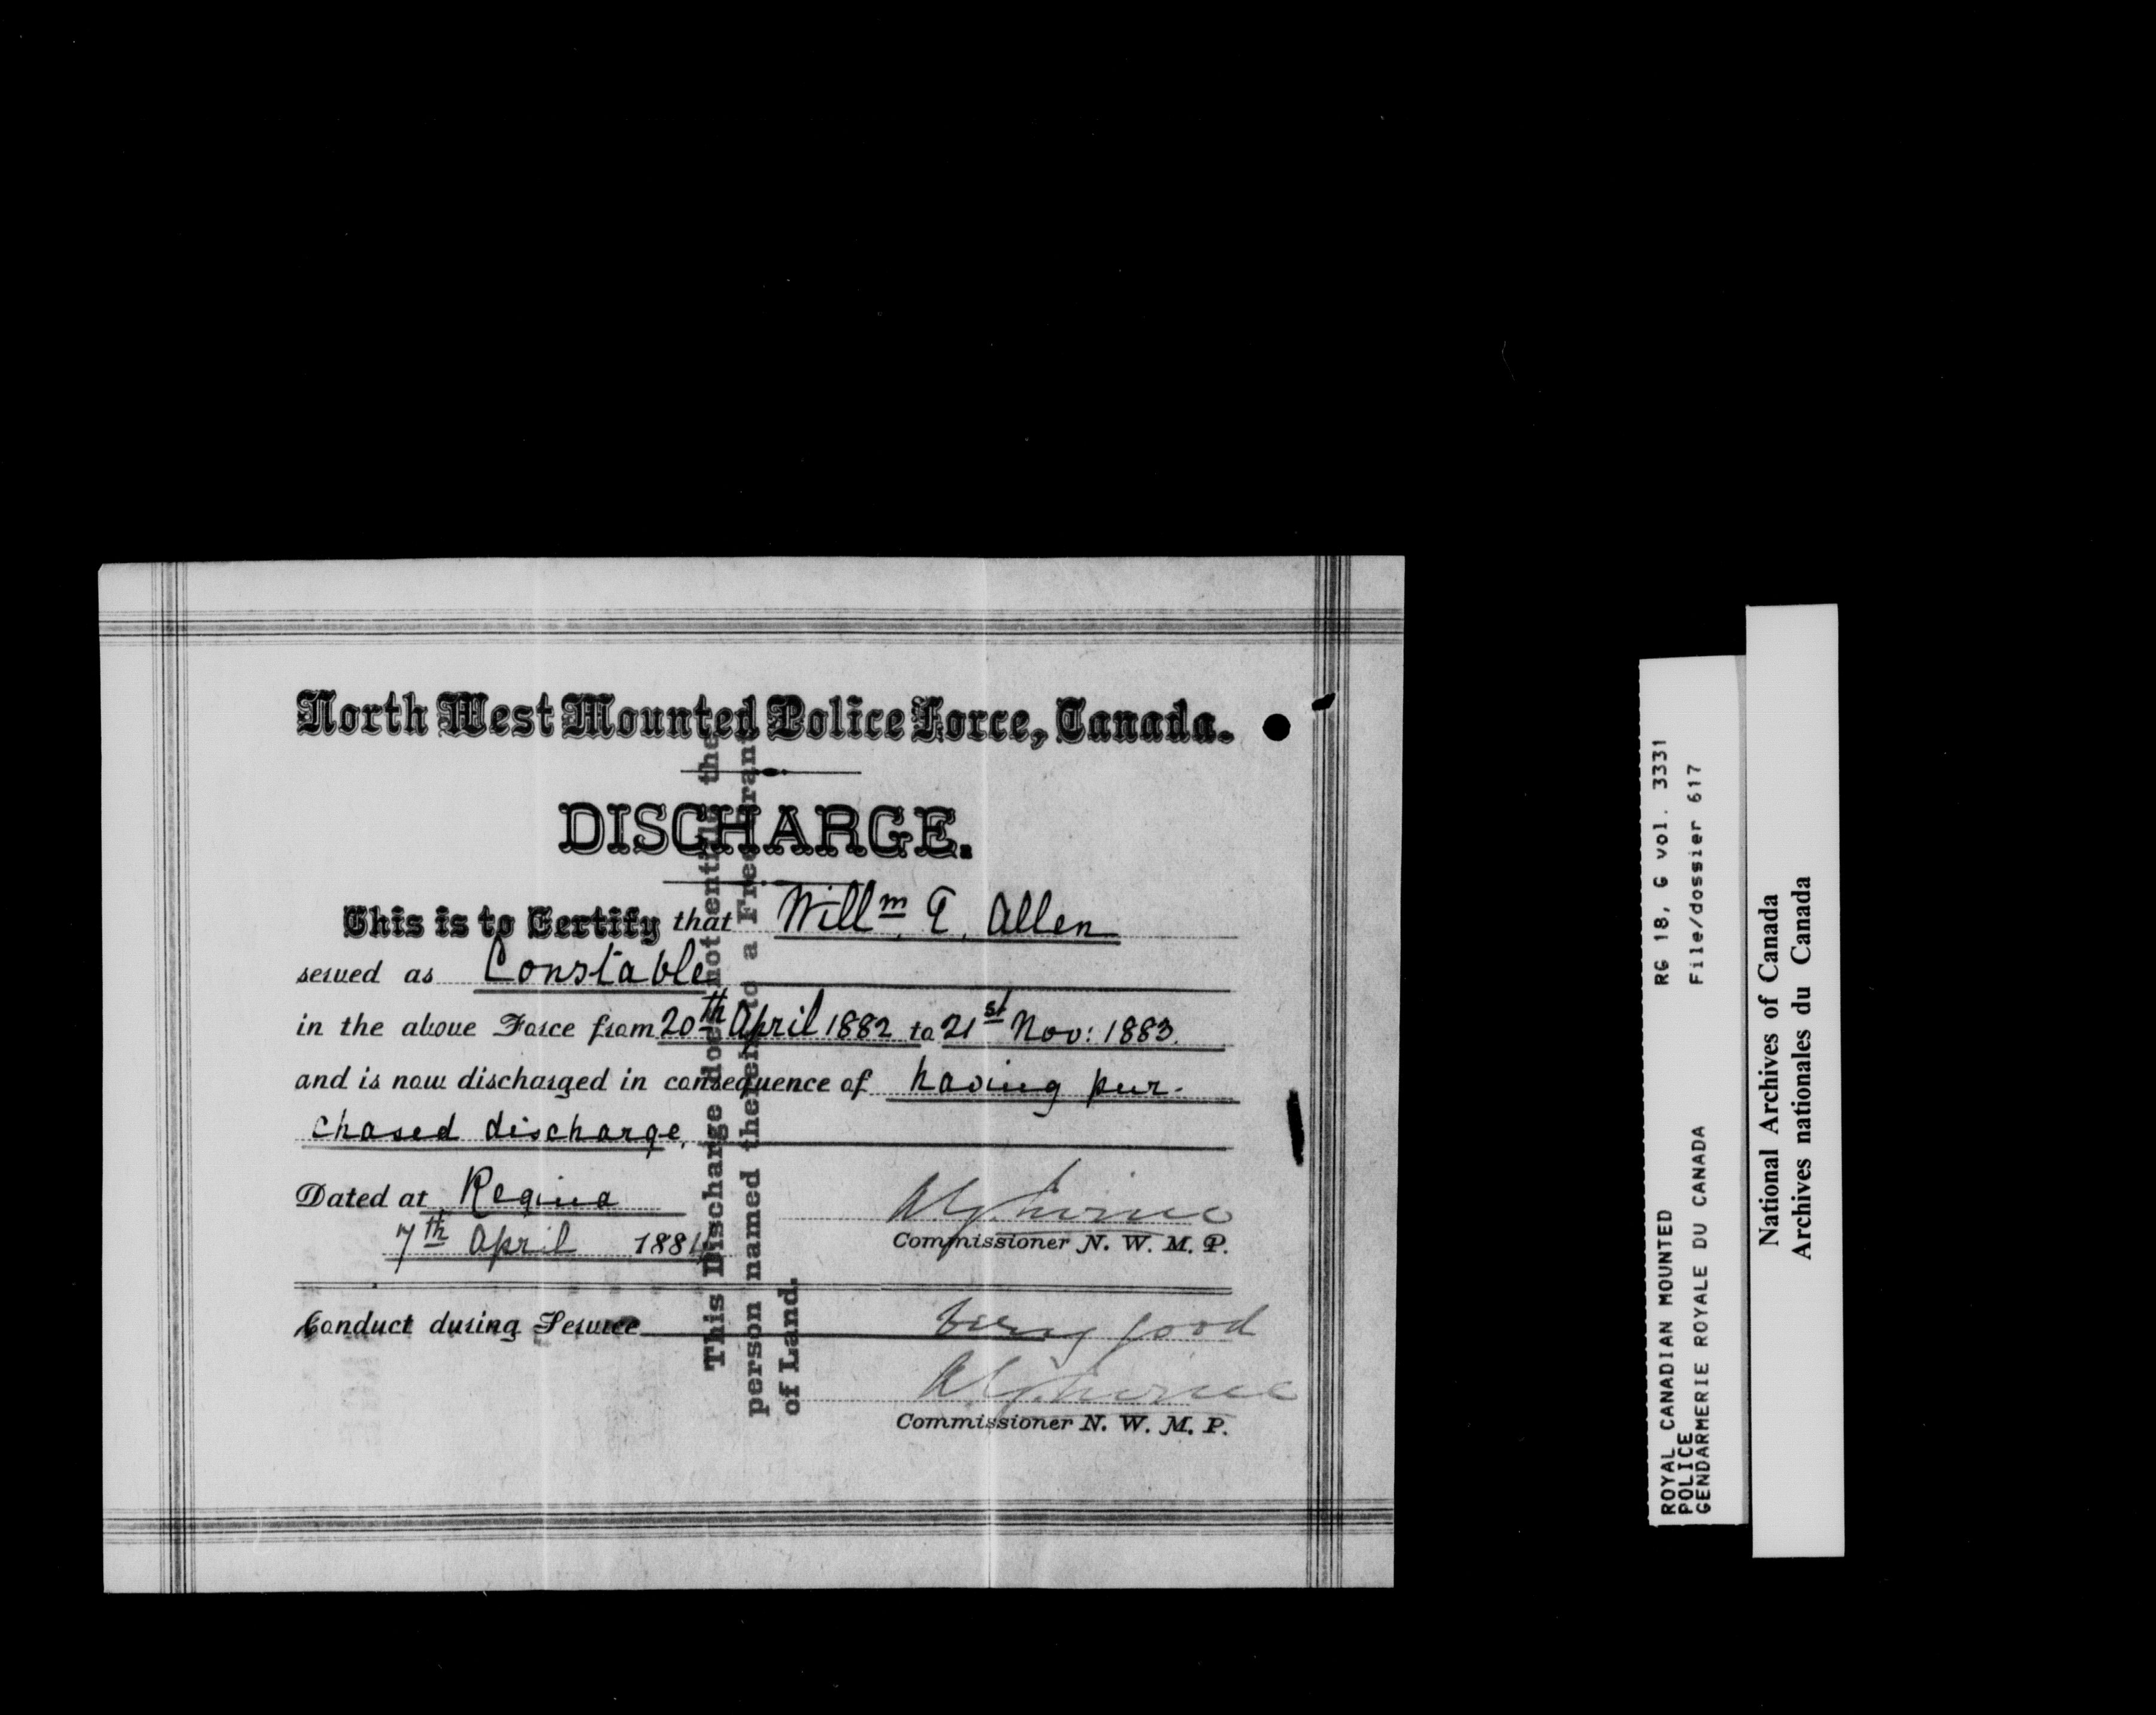 North West Mounted Police Force, Canada.
DISCHARGE.
This is to Certify that Willm. T. Allen
served as Constable
in the above Force from 20th April 1882 to 21st Nov: 1883.
and is now discharged in consequence of having pur-
chased discharge.
Dated at Regina
7th April 1884
Commissioner N. W. M. P.
Conduct during Service very good
Commissioner N. W. M. P.
This Discharge does not entitle the
person named therein to a Free Grant
of Land.
ROYAL CANADIAN MOUNTED RG 18, G vol. 3331
POLICE
GENDARMERIE ROYALE DU CANADA File/dossier 617
National Archives of Canada
Archives nationales du Canada